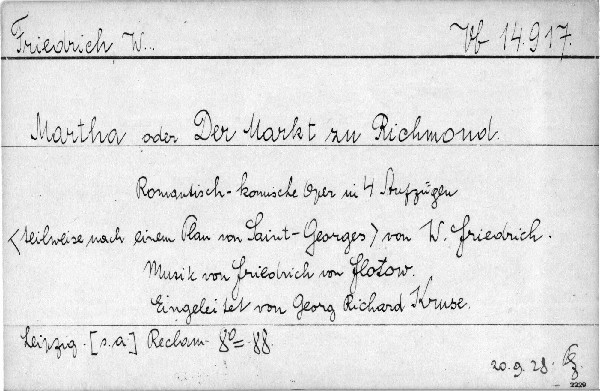 Friedrich, W..
Vb 14.917.
Martha oder Der Markt zu Richmond.
Romantisch-komische Oper in 4 Aufzügen
<teilweise nach einem Plan von Saint-Georges> von W. Friedrich.
Musik von Friedrich von Flotow.
Eingeleitet von Georg Richard Kruse.
Leipzig. [s.a.] Reclam. 8°= 88.
20.9.28.
2229